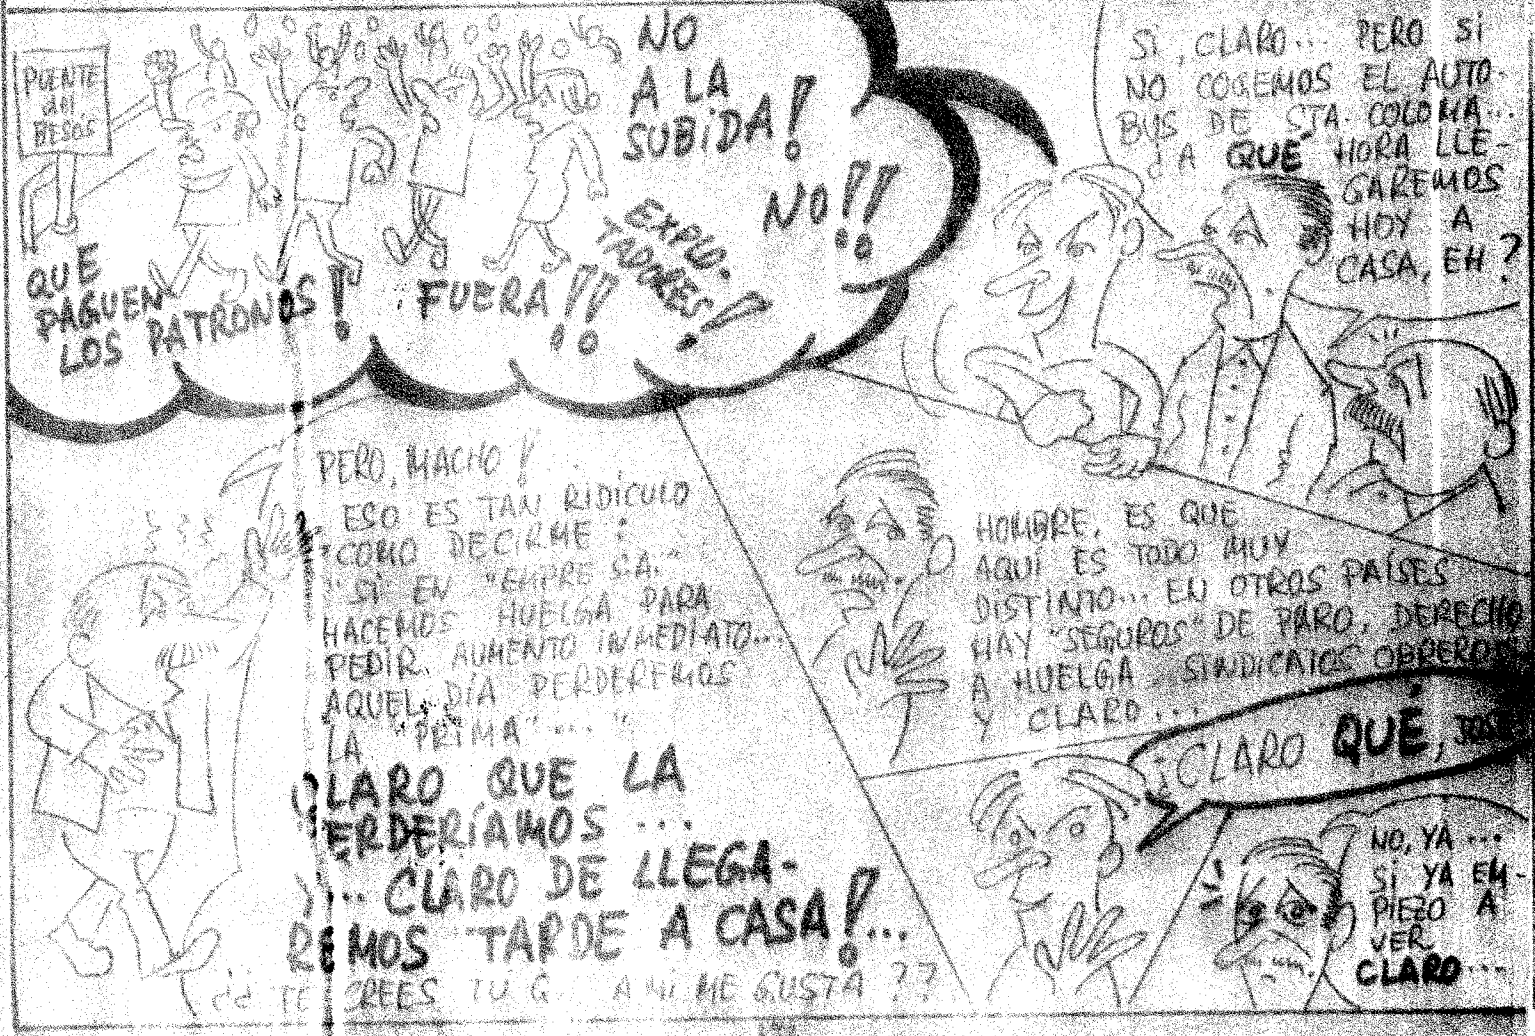 PUENTE
del
BESÓS
NO
A LA
SUBiDA!
NO!!
EXPLO-
TADORES!
FUERA!!
QUE
PAGUEN
LOS PATRONOS!
Si, CLARO... PERO Si
NO COGEMOS EL AUTO-
BUS DE STA. COLOMA...
¿A QUÉ HORA LLE-
GAREMOS
HOY A
CASA, EH?
PERO, MACHO!
ESO ES TAN RiDÍCULO
COMO DECiRME:
"Si EN "EMPRE S.A."
HACEMOS HUELGA PARA
PEDiR AUMENTO iNMEDiATO...
AQUEL DÍA PERDEREMOS
LA "PRiMA"..."
CLARO QUE LA
PERDERÍAMOS...
Y... CLARO DE LLEGA-
REMOS TARDE A CASA!...
¿¿TE CREES TÚ Q. A Mi ME GUSTA??
HOMBRE, ES QUE
AQUÍ ES TODO MUY
DiSTiNTO... EN OTROS PAÍSES
HAY "SEGUROS" DE PARO, DERECHO
A HUELGA, SiNDiCATOS OBREROS
Y CLARO...
¿CLARO QUÉ, JOSÉ
NO, YA...
Si YA EM-
PiEZO A
VER
CLARO...